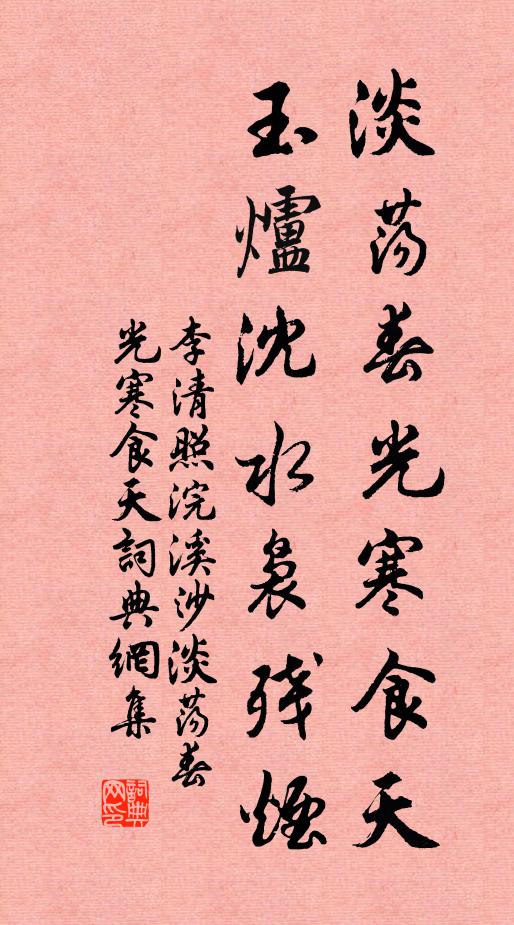 淡蕩春光寒食天
玉爐沈水裊殘煙
李清照浣溪沙淡蕩春
光寒食天詞典網集
詞典
网印